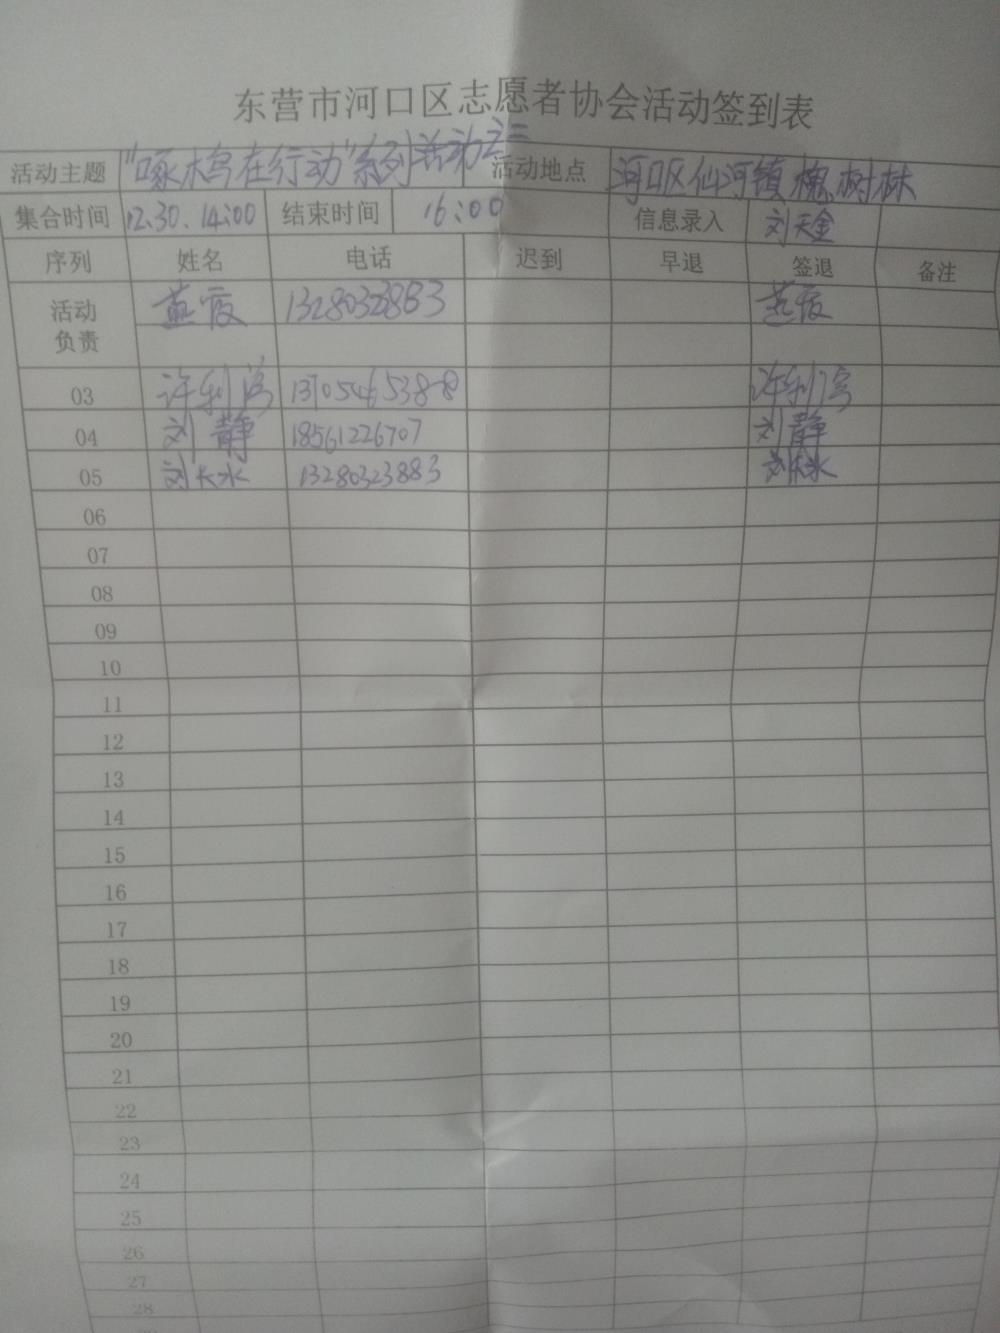 东营市河口区志愿者协会活动签到表
活动主题 "啄木鸟在行动"系列活动之二 活动地点 河口区仙河镇槐树林
集合时间 12.30.14:00 结束时间 16:00 信息录入 刘天金
序列 姓名 电话 迟到 早退 签退 备注
活动
负责
燕霞 燕霞
03 许利 许利
04 刘静 18561226707 刘静
05 刘长水 13280323883 刘长水
06
07
08
09
10
11
12
13
14
15
16
17
18
19
20
21
22
23
24
25
26
27
28